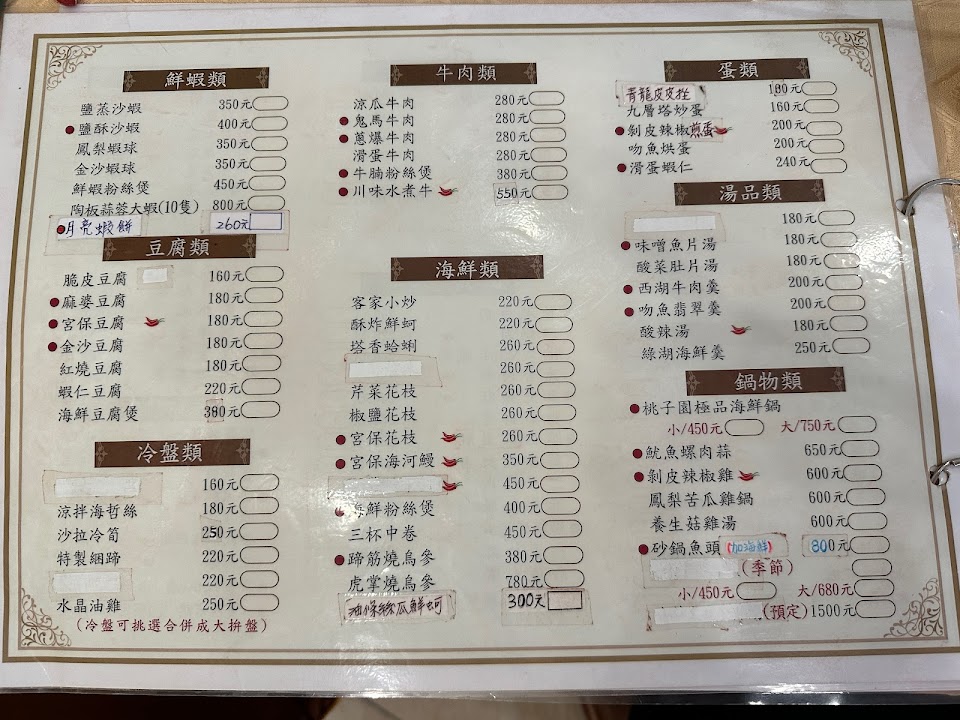 鮮蝦類
鹽蒸沙蝦 350元
鹽酥沙蝦 400元
鳳梨蝦球 350元
金沙蝦球 350元
鮮蝦粉絲煲 450元
陶板蒜蓉大蝦(10隻) 800元
月亮蝦餅 260元
豆腐類
脆皮豆腐 160元
麻婆豆腐 180元
宮保豆腐 180元
金沙豆腐 180元
紅燒豆腐 180元
蝦仁豆腐 220元
海鮮豆腐煲 380元
冷盤類
160元
涼拌海哲絲 180元
沙拉冷筍 250元
特製綑蹄 220元
220元
水晶油雞 250元
(冷盤可挑選合併成大拚盤)
牛肉類
涼瓜牛肉 280元
鬼馬牛肉 280元
蔥爆牛肉 280元
滑蛋牛肉 280元
牛腩粉絲煲 380元
川味水煮牛 550元
海鮮類
客家小炒 220元
酥炸鮮蚵 220元
塔香蛤蜊 260元
260元
芹菜花枝 260元
椒鹽花枝 260元
宮保花枝 260元
宮保海河鰻 350元
450元
海鮮粉絲煲 400元
三杯中卷 450元
蹄筋燒烏參 380元
虎掌燒烏參 780元
油條絲瓜鮮蚵 300元
蛋類
青龍皮皮挫 180元
九層塔炒蛋 160元
剝皮辣椒煎蛋 200元
吻魚烘蛋 200元
滑蛋蝦仁 240元
湯品類
180元
味噌魚片湯 180元
酸菜肚片湯 180元
西湖牛肉羹 200元
吻魚翡翠羹 200元
酸辣湯 180元
綠湖海鮮羹 250元
鍋物類
桃子園極品海鮮鍋
小/450元 大/750元
魷魚螺肉蒜 650元
剝皮辣椒雞 600元
鳳梨苦瓜雞鍋 600元
養生菇雞湯 600元
砂鍋魚頭(加海鮮) 800元
(季節)
小/450元 大/680元
(預定)1500元